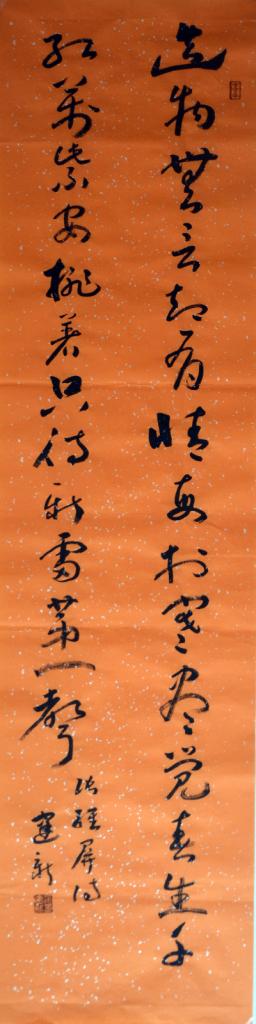 造物無言却有情每於寒尽觉春生千
红萬紫安排着只待新雷第一聲
张维屏诗
建新